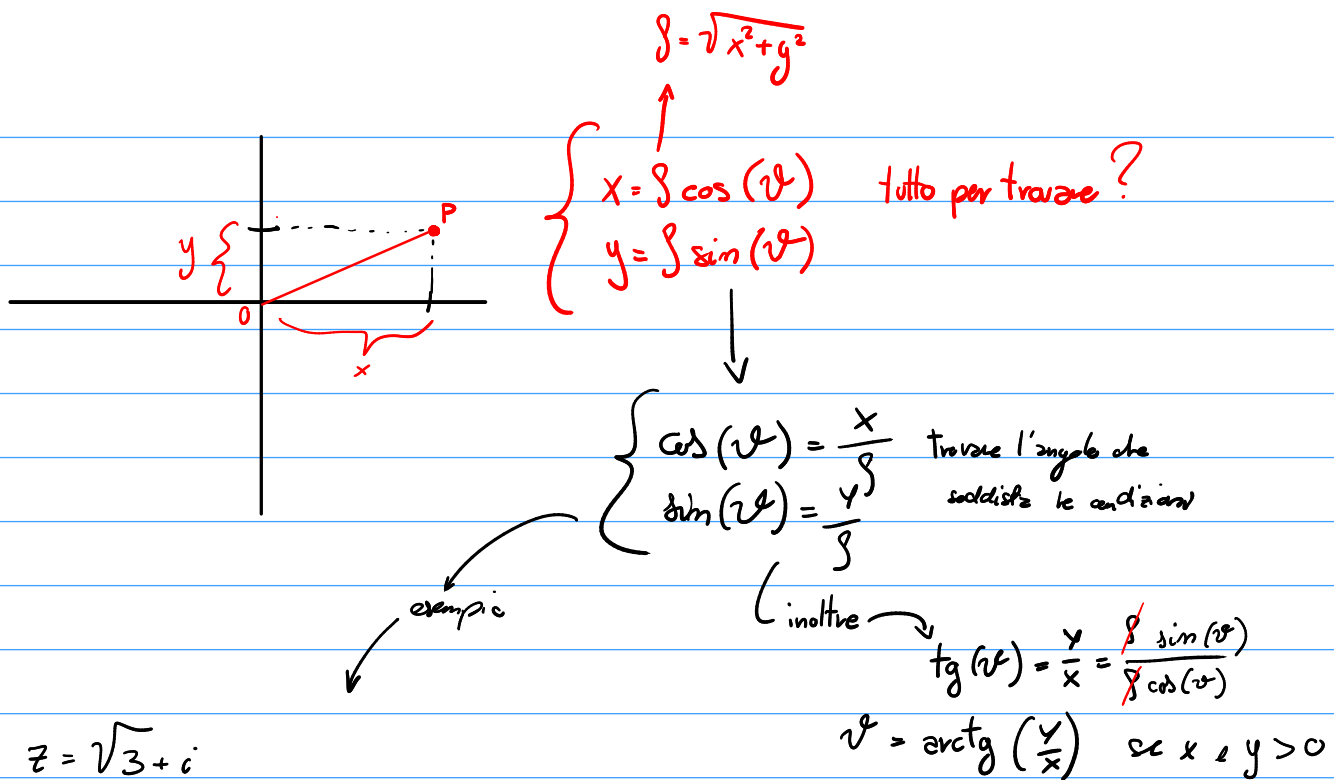 ρ = √(x² + y²)
x = ρ cos(ϑ) tutto per trovare?
y = ρ sin(ϑ)
P
y
0
x
cos(ϑ) = x/ρ trovare l'angolo che
sin(ϑ) = y/ρ soddisfa le condizioni
esempio
inoltre
tg(ϑ) = y/x = ρ sin(ϑ)/ρ cos(ϑ)
ϑ = arctg (y/x) se x e y > 0
z = √3 + i